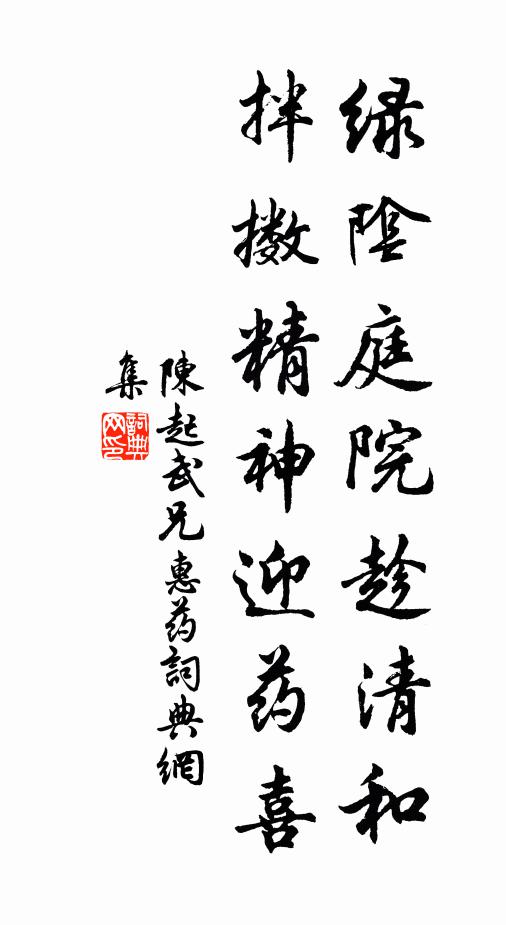 绿陰庭院趁清和
拌擻精神迎药喜
陳起武兄惠药詞典網
集
詞典
网印